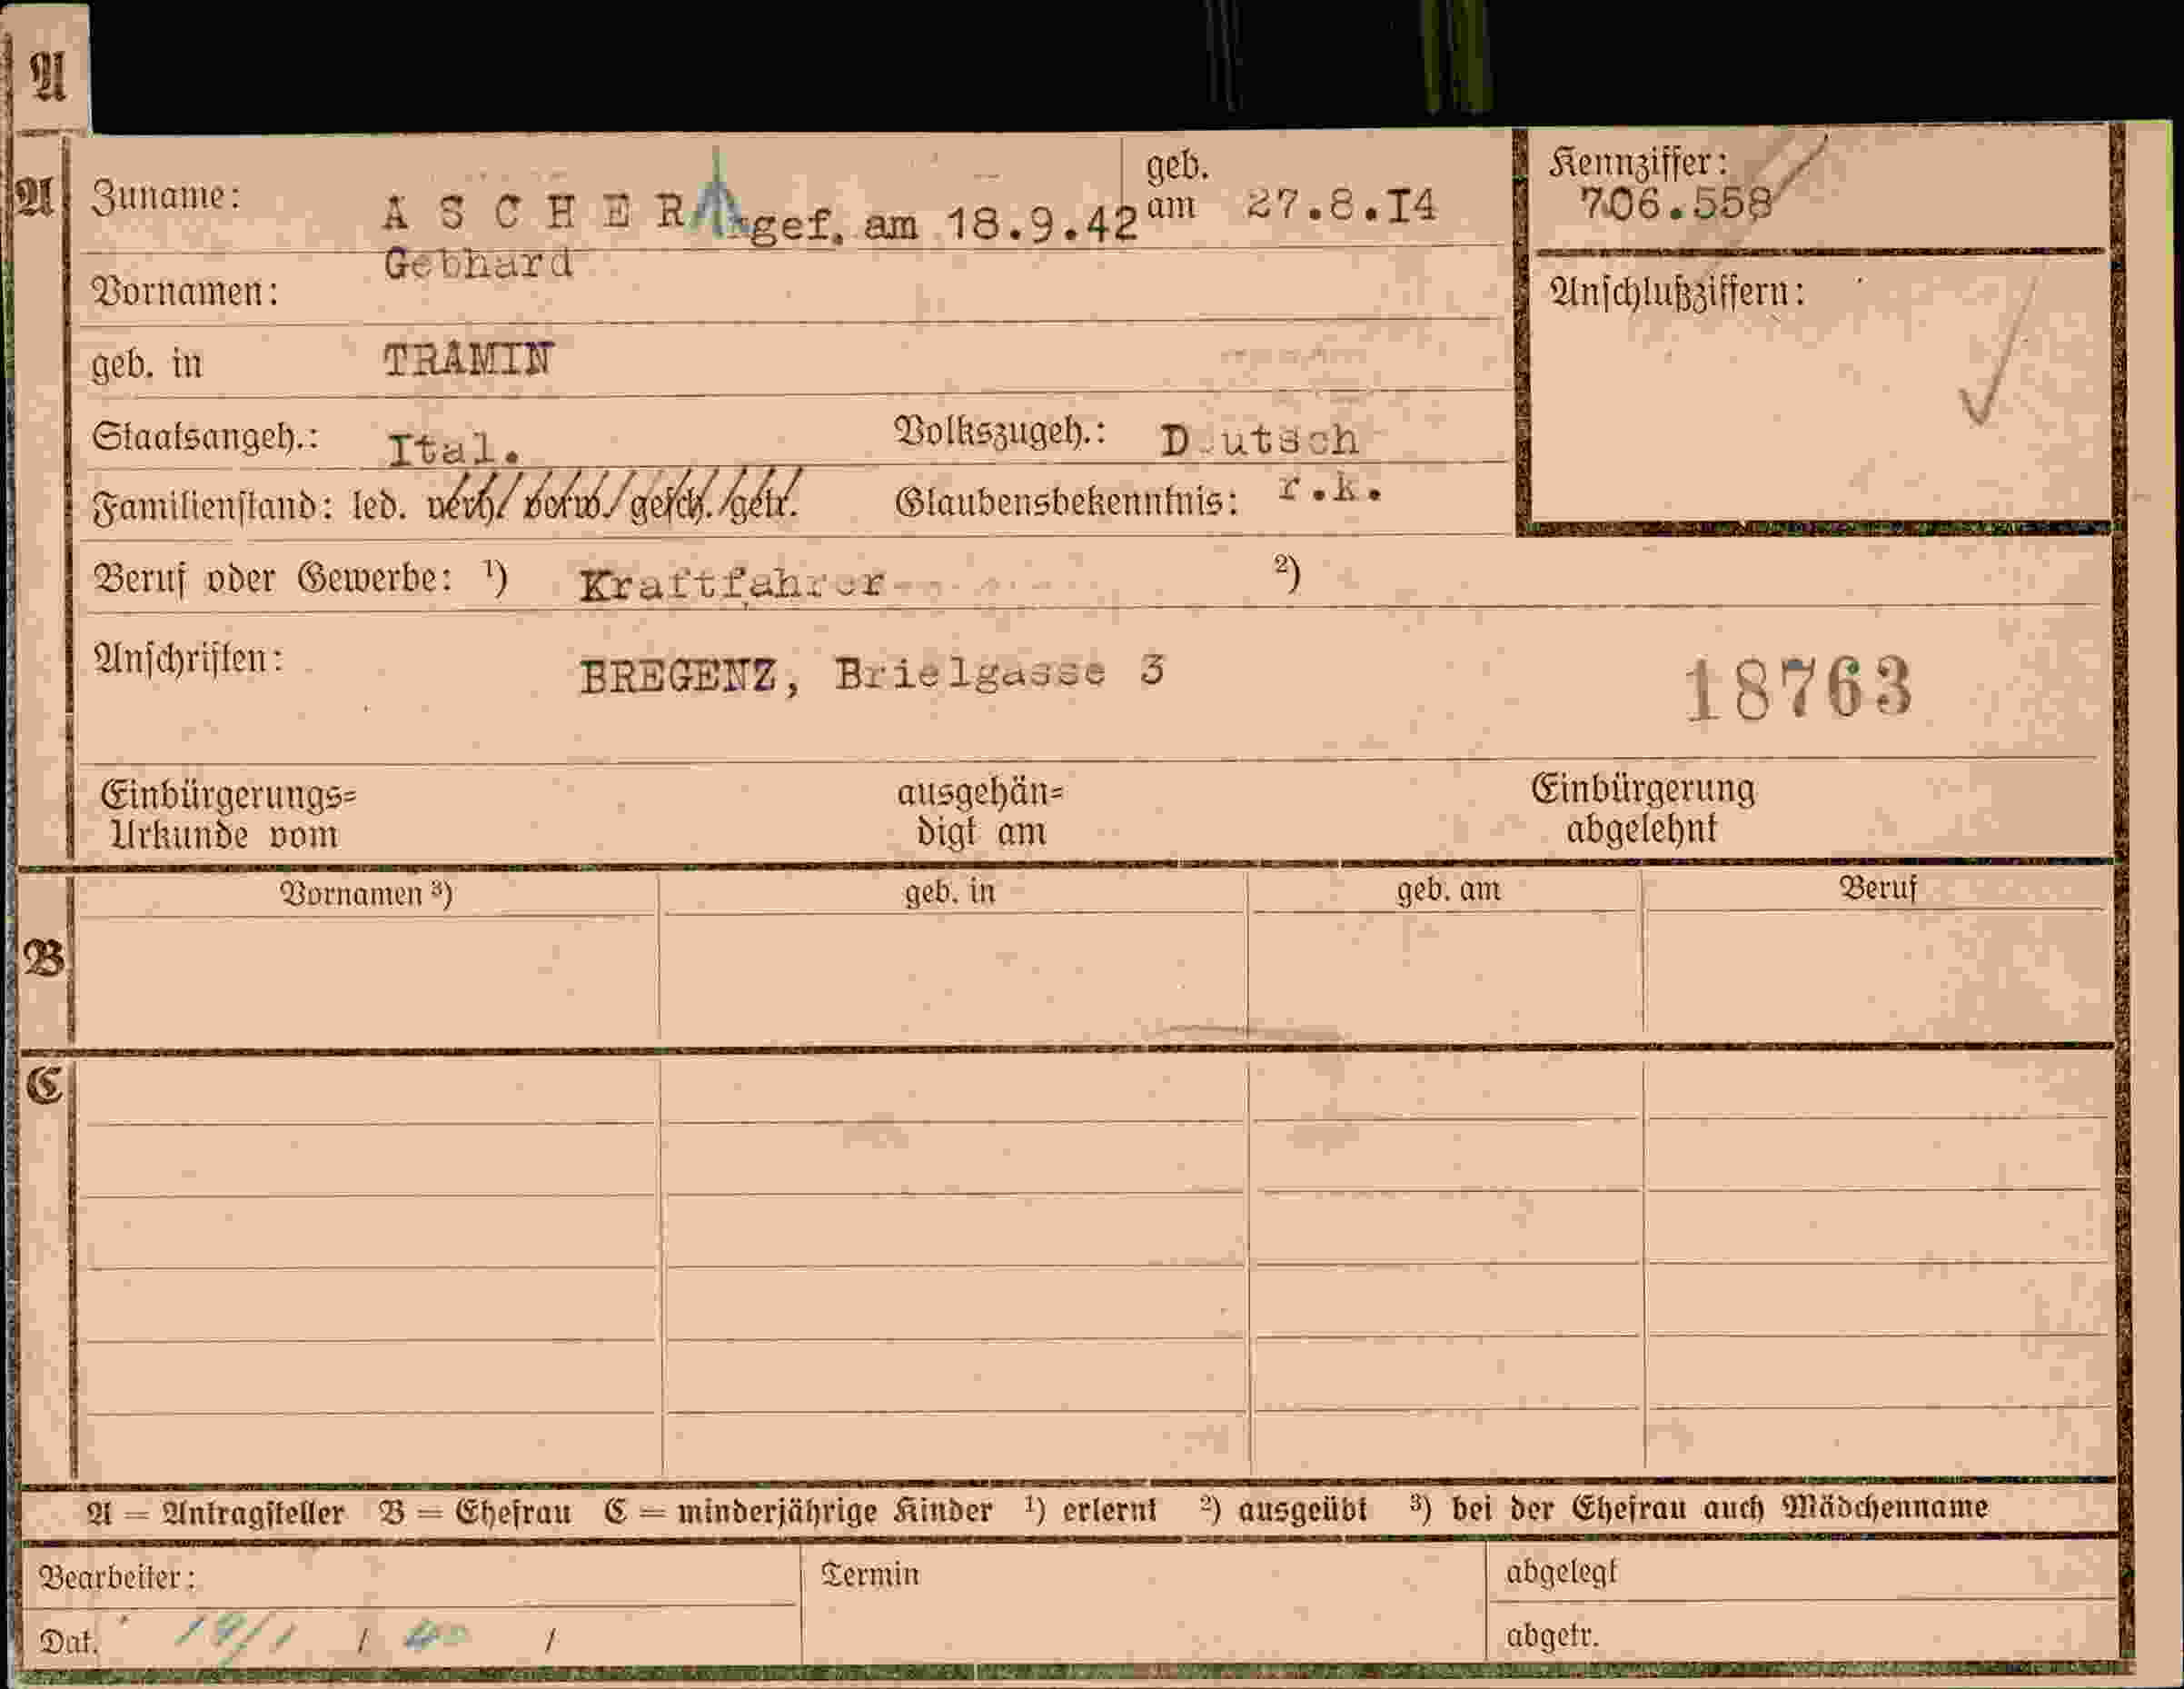 A
A Zuname: ASCHER gef. am 18.9.42 geb. am 27.8.I4 Kennziffer: 706.558
Vornamen: Gebhard
Anschlußziffern:
geb. in TRAMIN
Staatsangeh.: Ital. Volkszugeh.: D utsch
Familienstand: led. verh/ verw./ gesch./getr. Glaubensbekenntnis: r.k.
Beruf oder Gewerbe: ¹) Kraftfahrer ²)
Anschriften: BREGENZ, Brielgasse 3 18763
Einbürgerungs= ausgehän= Einbürgerung
Urkunde vom digt am abgelehnt
Vornamen ³) geb. in geb. am Beruf
B
C
A = Antragsteller B = Ehefrau C = minderjährige Kinder ¹) erlernt ²) ausgeübt ³) bei der Ehefrau auch Mädchenname
Bearbeiter: Termin abgelegt
Dat. 19/1 / 40 / abgetr.